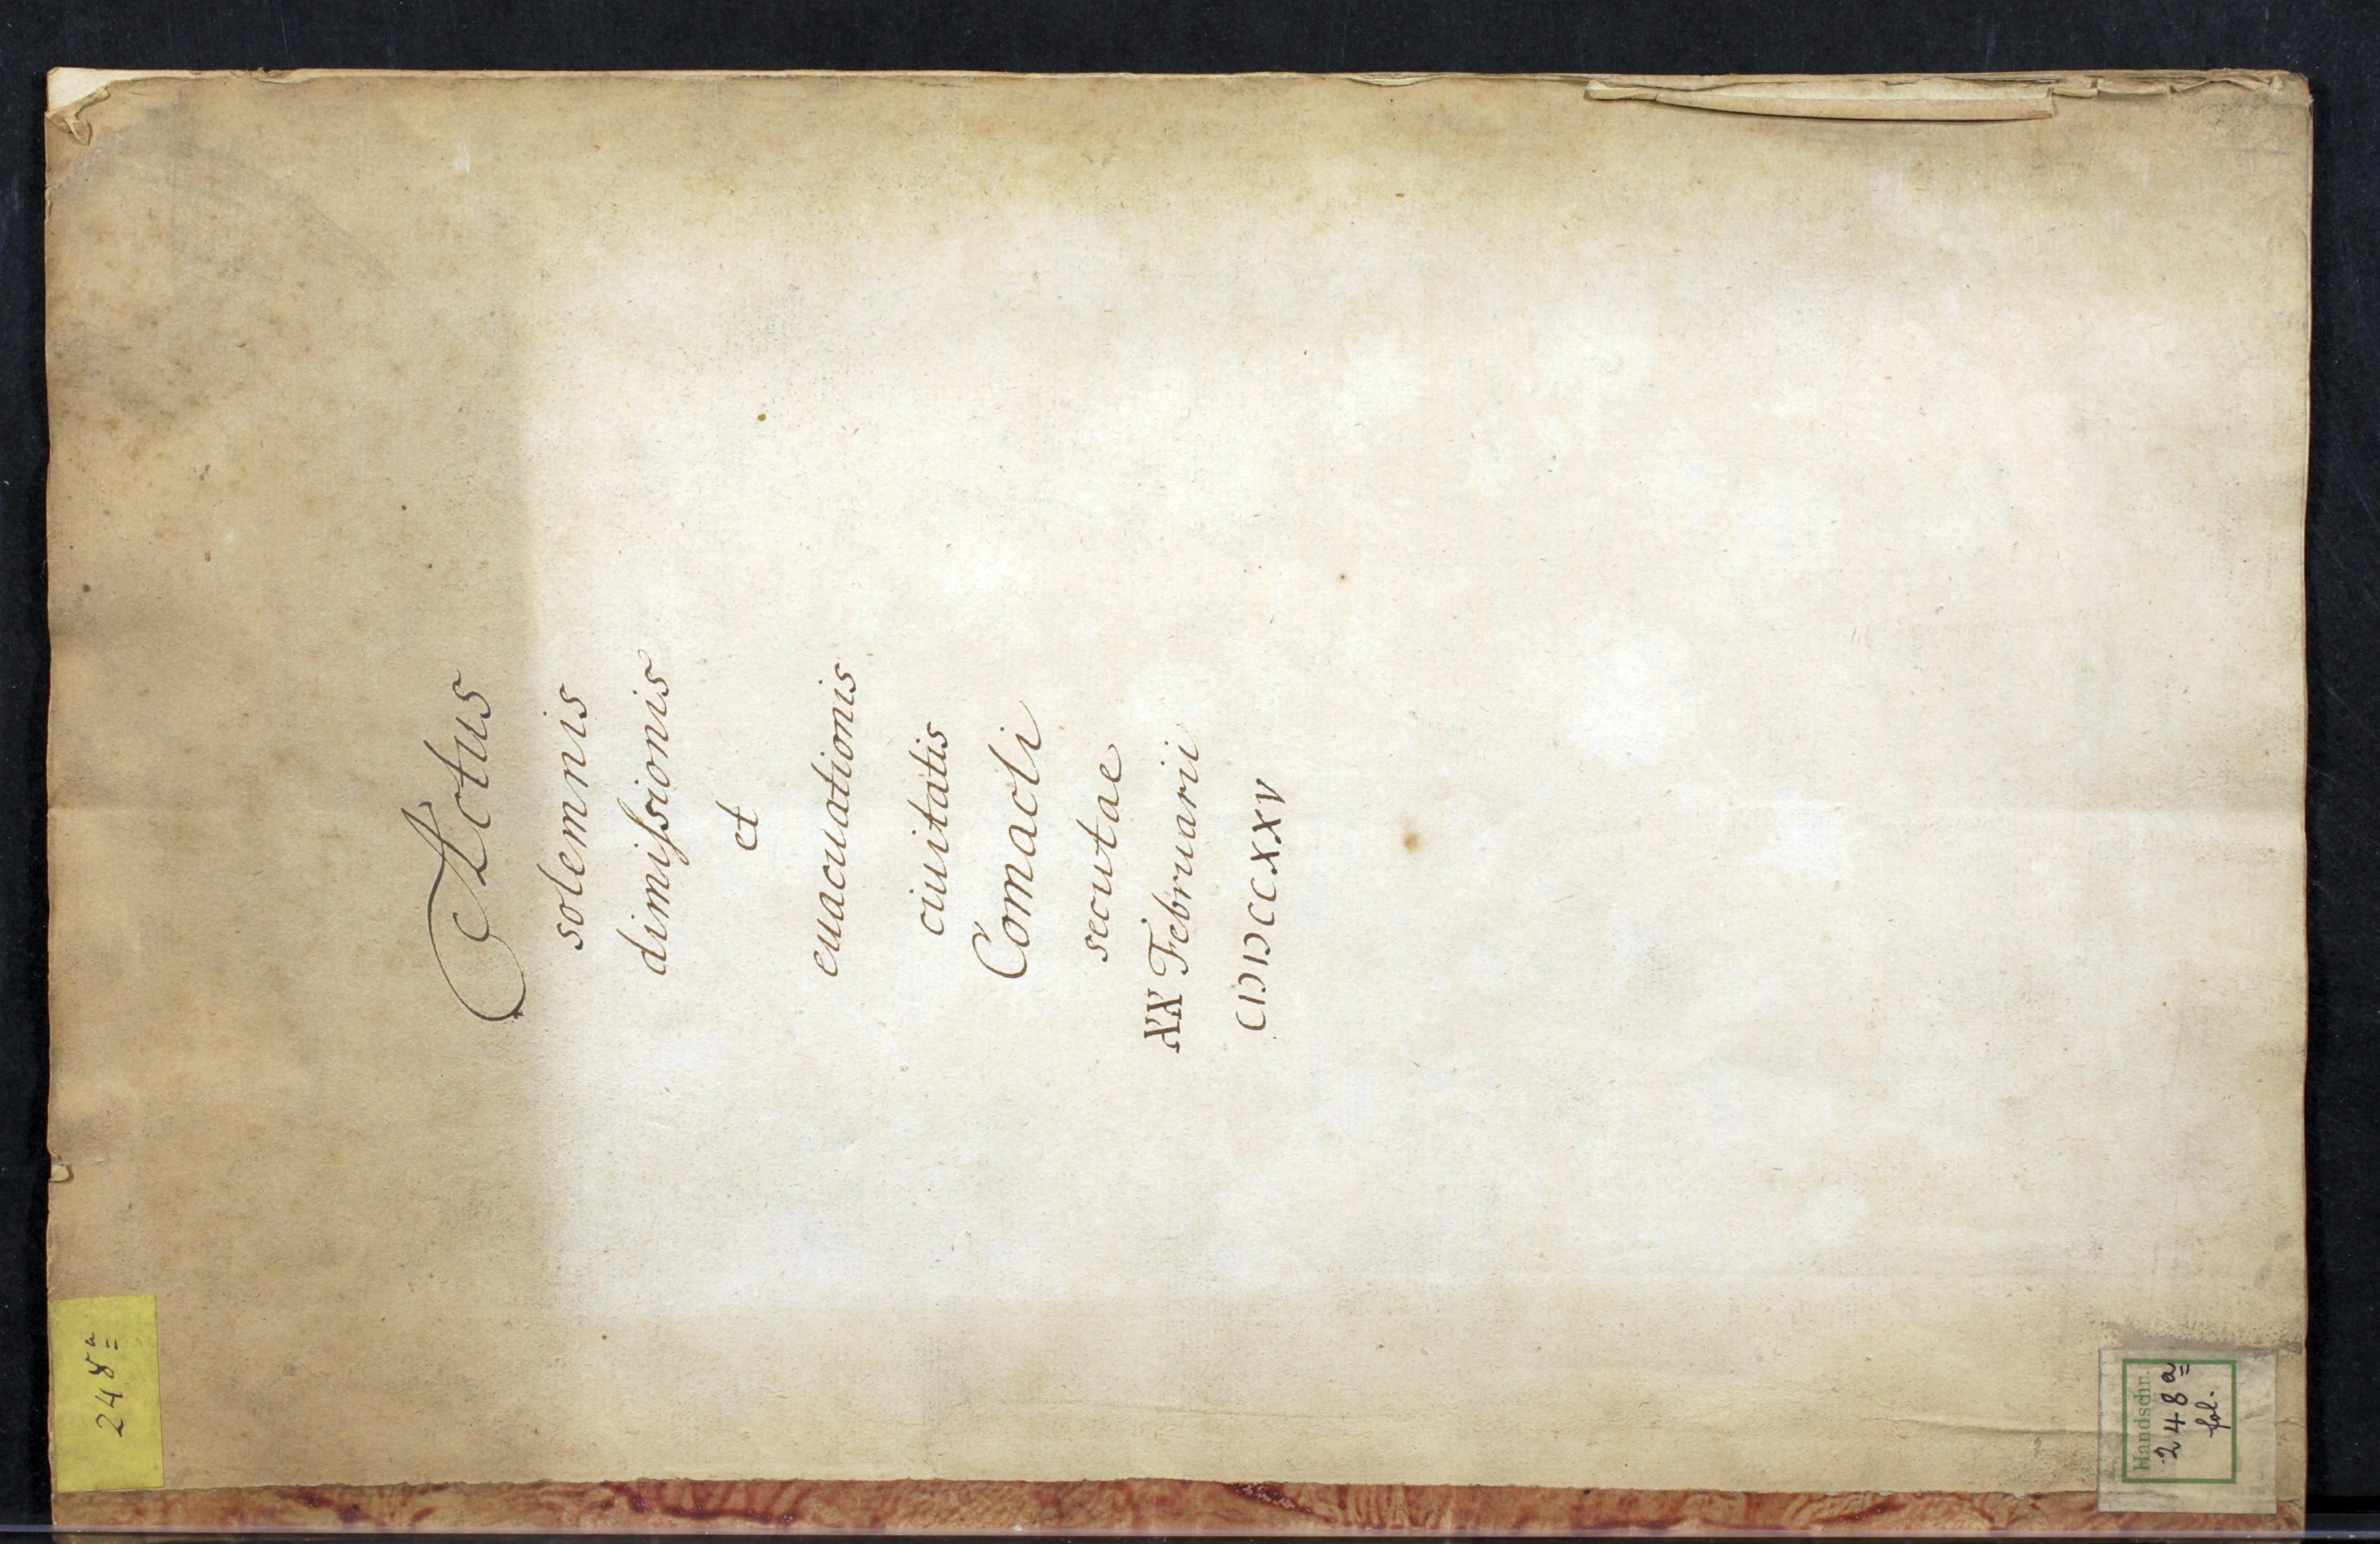 Actus
solemnis
dimiſsionis
et
euacuationis
ciuitatis
Comacli
secutae
XX Februarii
CIƆIƆCCXXV
248a
Handschr.
248a
fol.